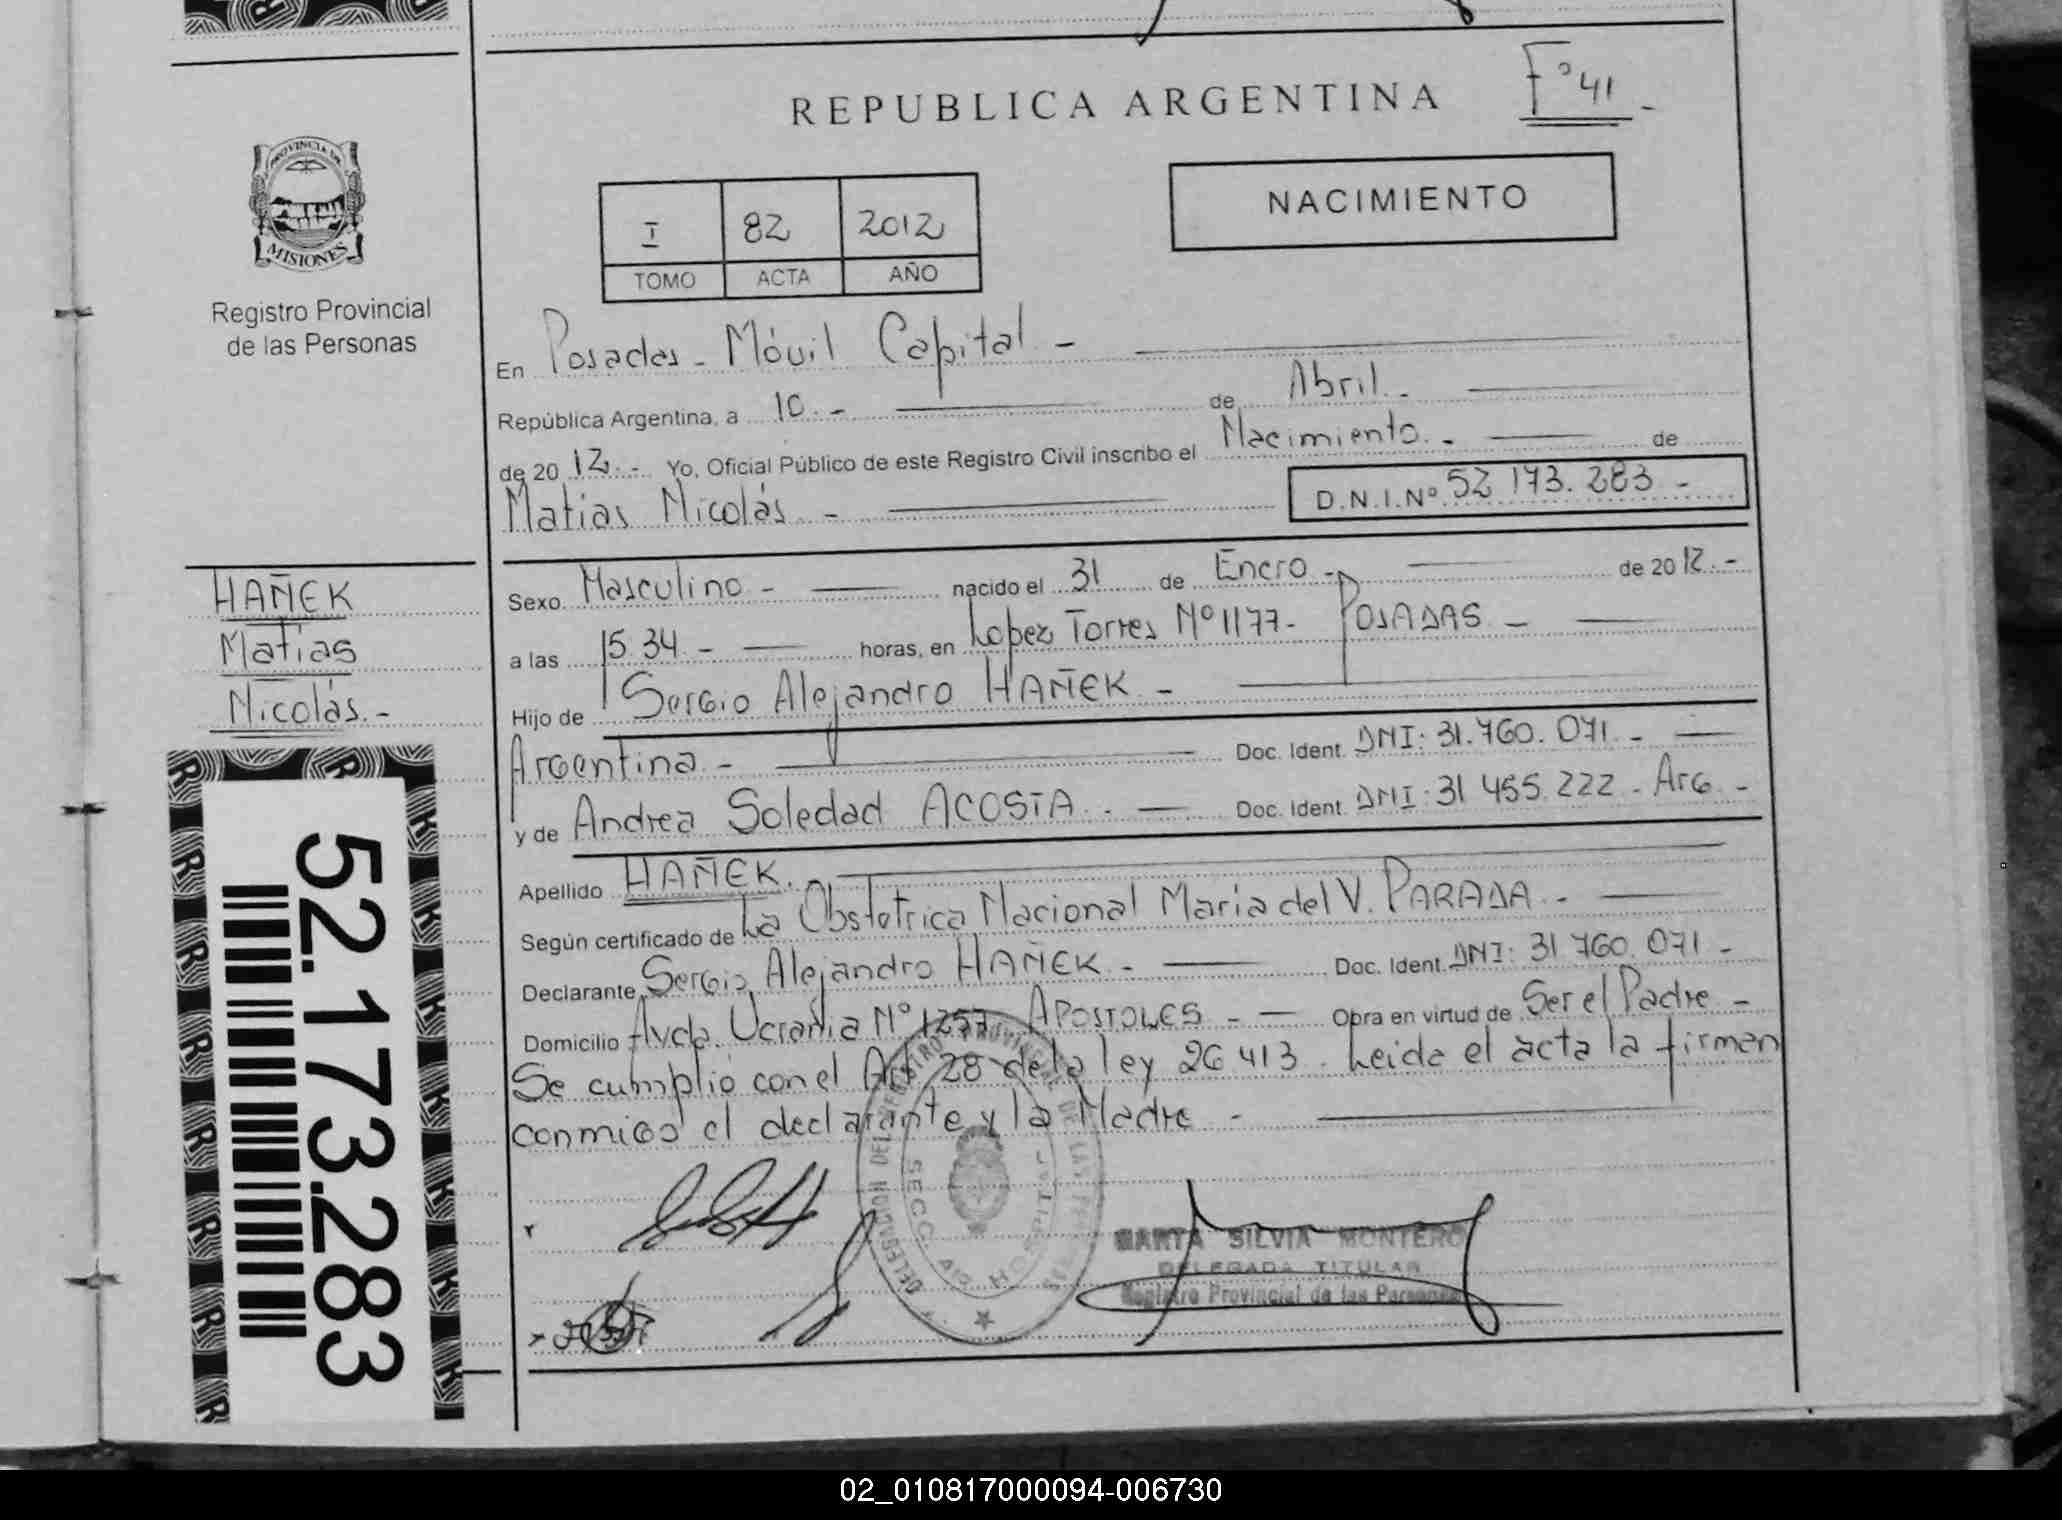 REPUBLICA ARGENTINA
Fº 41
PROVINCIA DE
MISIONES
Registro Provincial
de las Personas
I 82 2012
TOMO ACTA AÑO
NACIMIENTO
En Posadas - Móvil Capital -
República Argentina, a 10. - de Abril. -
de 20 12. - Yo, Oficial Público de este Registro Civil inscribo el Nacimiento. - de
Matias Nicolás. - D.N.I.Nº 52 173. 283 -
HAÑEK
Matias
Nicolás. -
Sexo Masculino - nacido el 31 de Enero - de 2012. -
a las 15.34. - horas, en Lopez Torres Nº 1177 - POSADAS -
Hijo de Sergio Alejandro HAÑEK -
Argentina. - Doc. Ident. DNI: 31.760. 071. -
y de Andrea Soledad ACOSTA. - Doc. Ident. DNI: 31 455. 222. - Arg. -
Apellido HAÑEK.
Según certificado de La Obstetrica Nacional Maria del V. PARADA. -
Declarante Sergio Alejandro HAÑEK - Doc. Ident. DNI: 31 760. 071 -
Domicilio Avda. Ucrania Nº 1257 APOSTOLES - Obra en virtud de Ser el Padre -
Se cumplio con el Art 28 de la ley 26 413. Leida el acta la firman
conmigo el declarante y la Madre -
52.173.283
DELEGACION DEL REGISTRO PROVINCIAL DE LAS PERSONAS
SECC. HOSPITAL
MARTA SILVIA MONTERO
DELEGADA TITULAR
Registro Provincial de las Personas
02_010817000094-006730